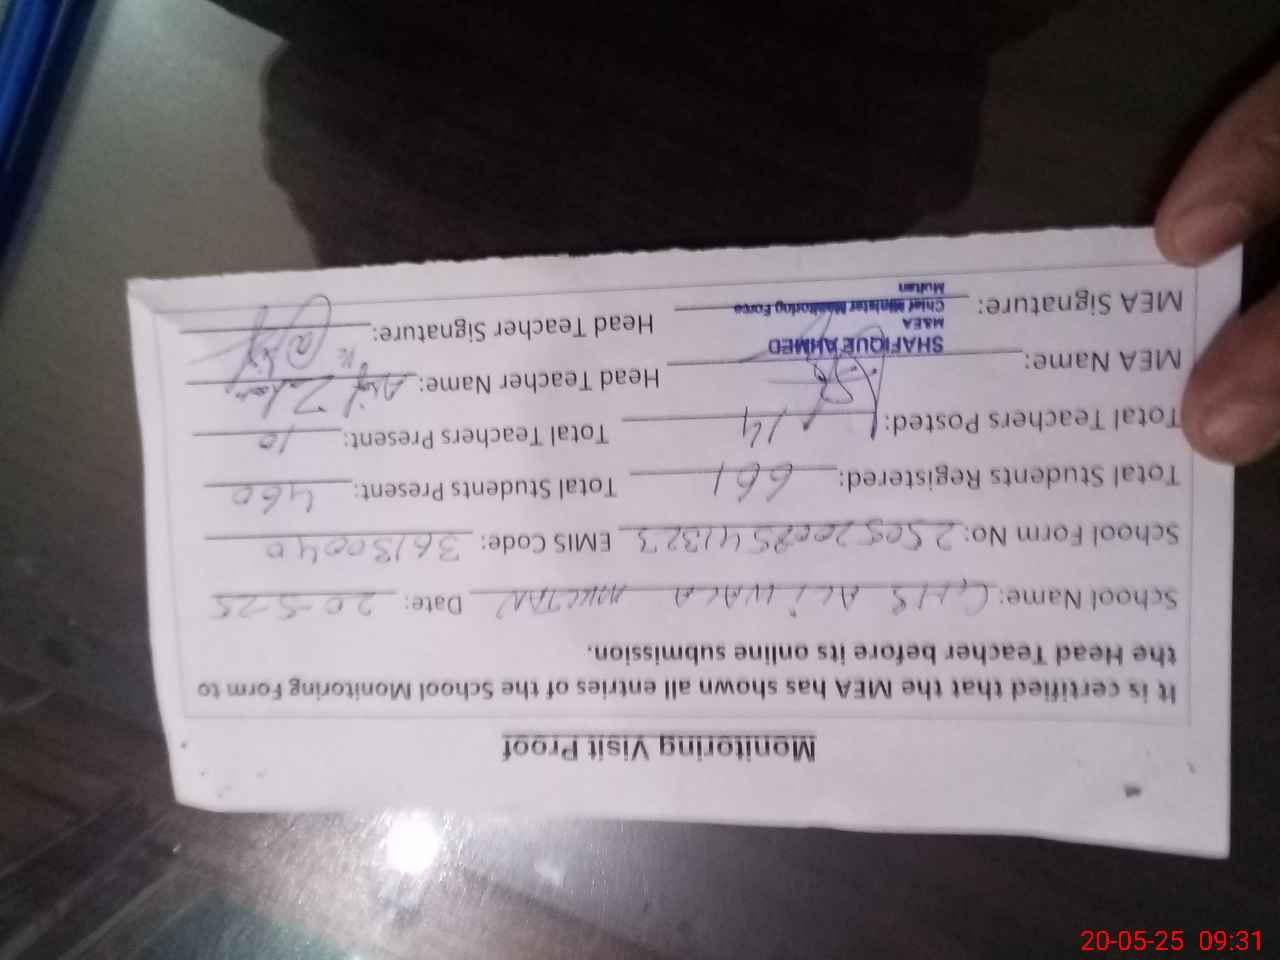 Monitoring Visit Proof
It is certified that the MEA has shown all entries of the School Monitoring Form to
the Head Teacher before its online submission.
School Name: GHS ALI WALA MULTAN Date: 20-5-25
School Form No: 25052009541323 EMIS Code: 36130040
Total Students Registered: 661 Total Students Present: 460
Total Teachers Posted: 14 Total Teachers Present: 10
MEA Name: SHAFIQUE AHMED Head Teacher Name: Asif Zafar
M&EA
Chief Minister Monitoring Force
Multan
MEA Signature: Head Teacher Signature:
20-05-25 09:31